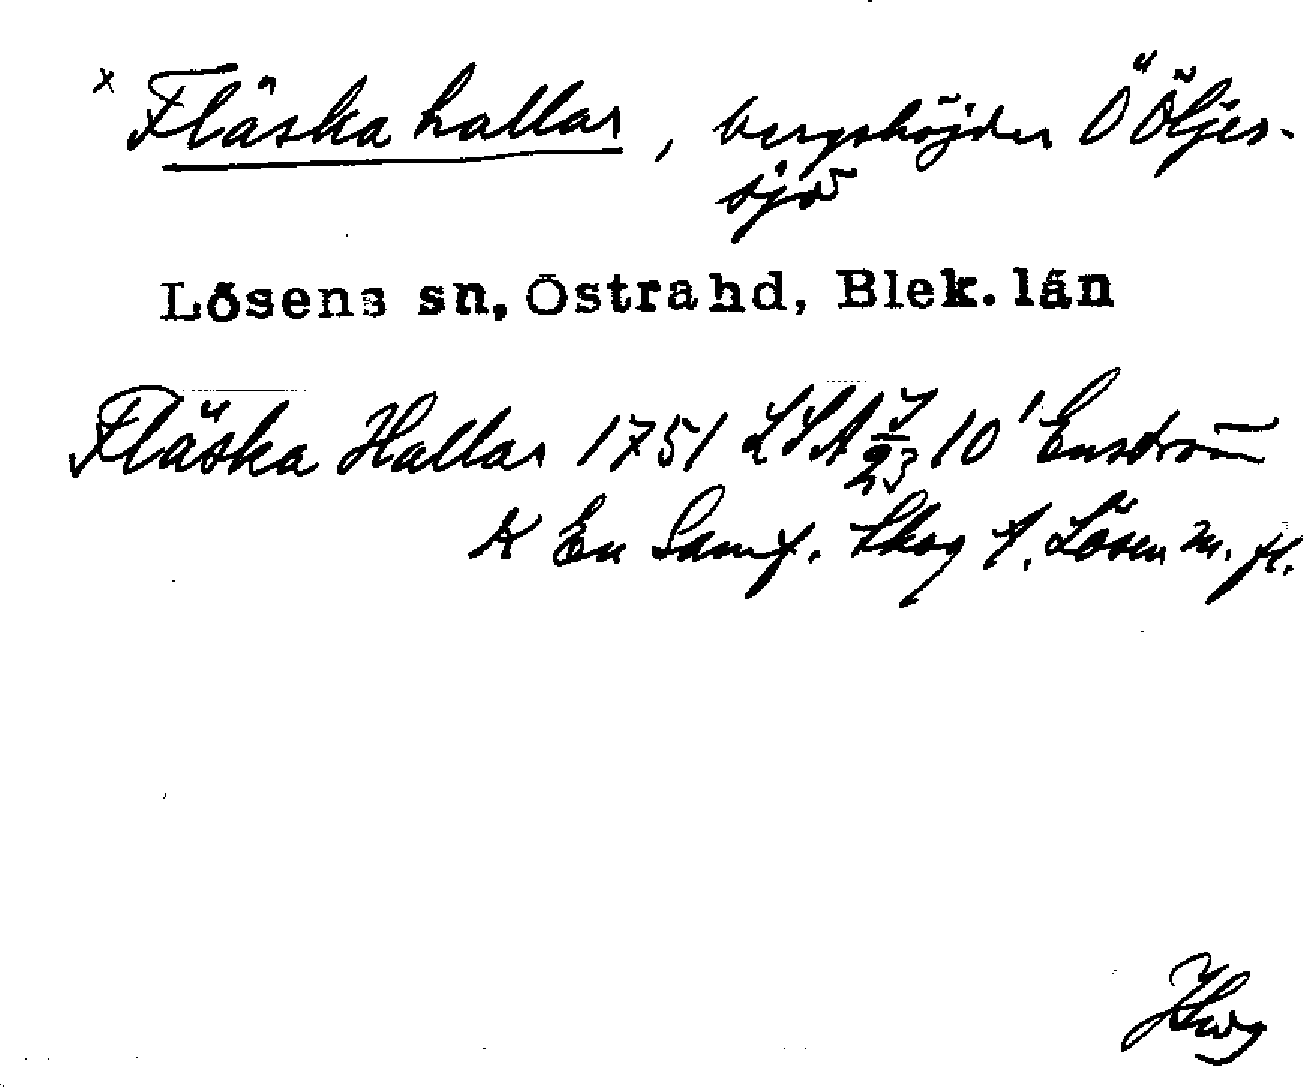 x Fläska hallar, bergshöjder Ö Öljes-
sjö
Lösens sn, Östra hd, Blek. län
Fläska Hallar 1751 LSA 7/23 10¹ Enström
K En Samf. Skog t. Lösen m. fl.